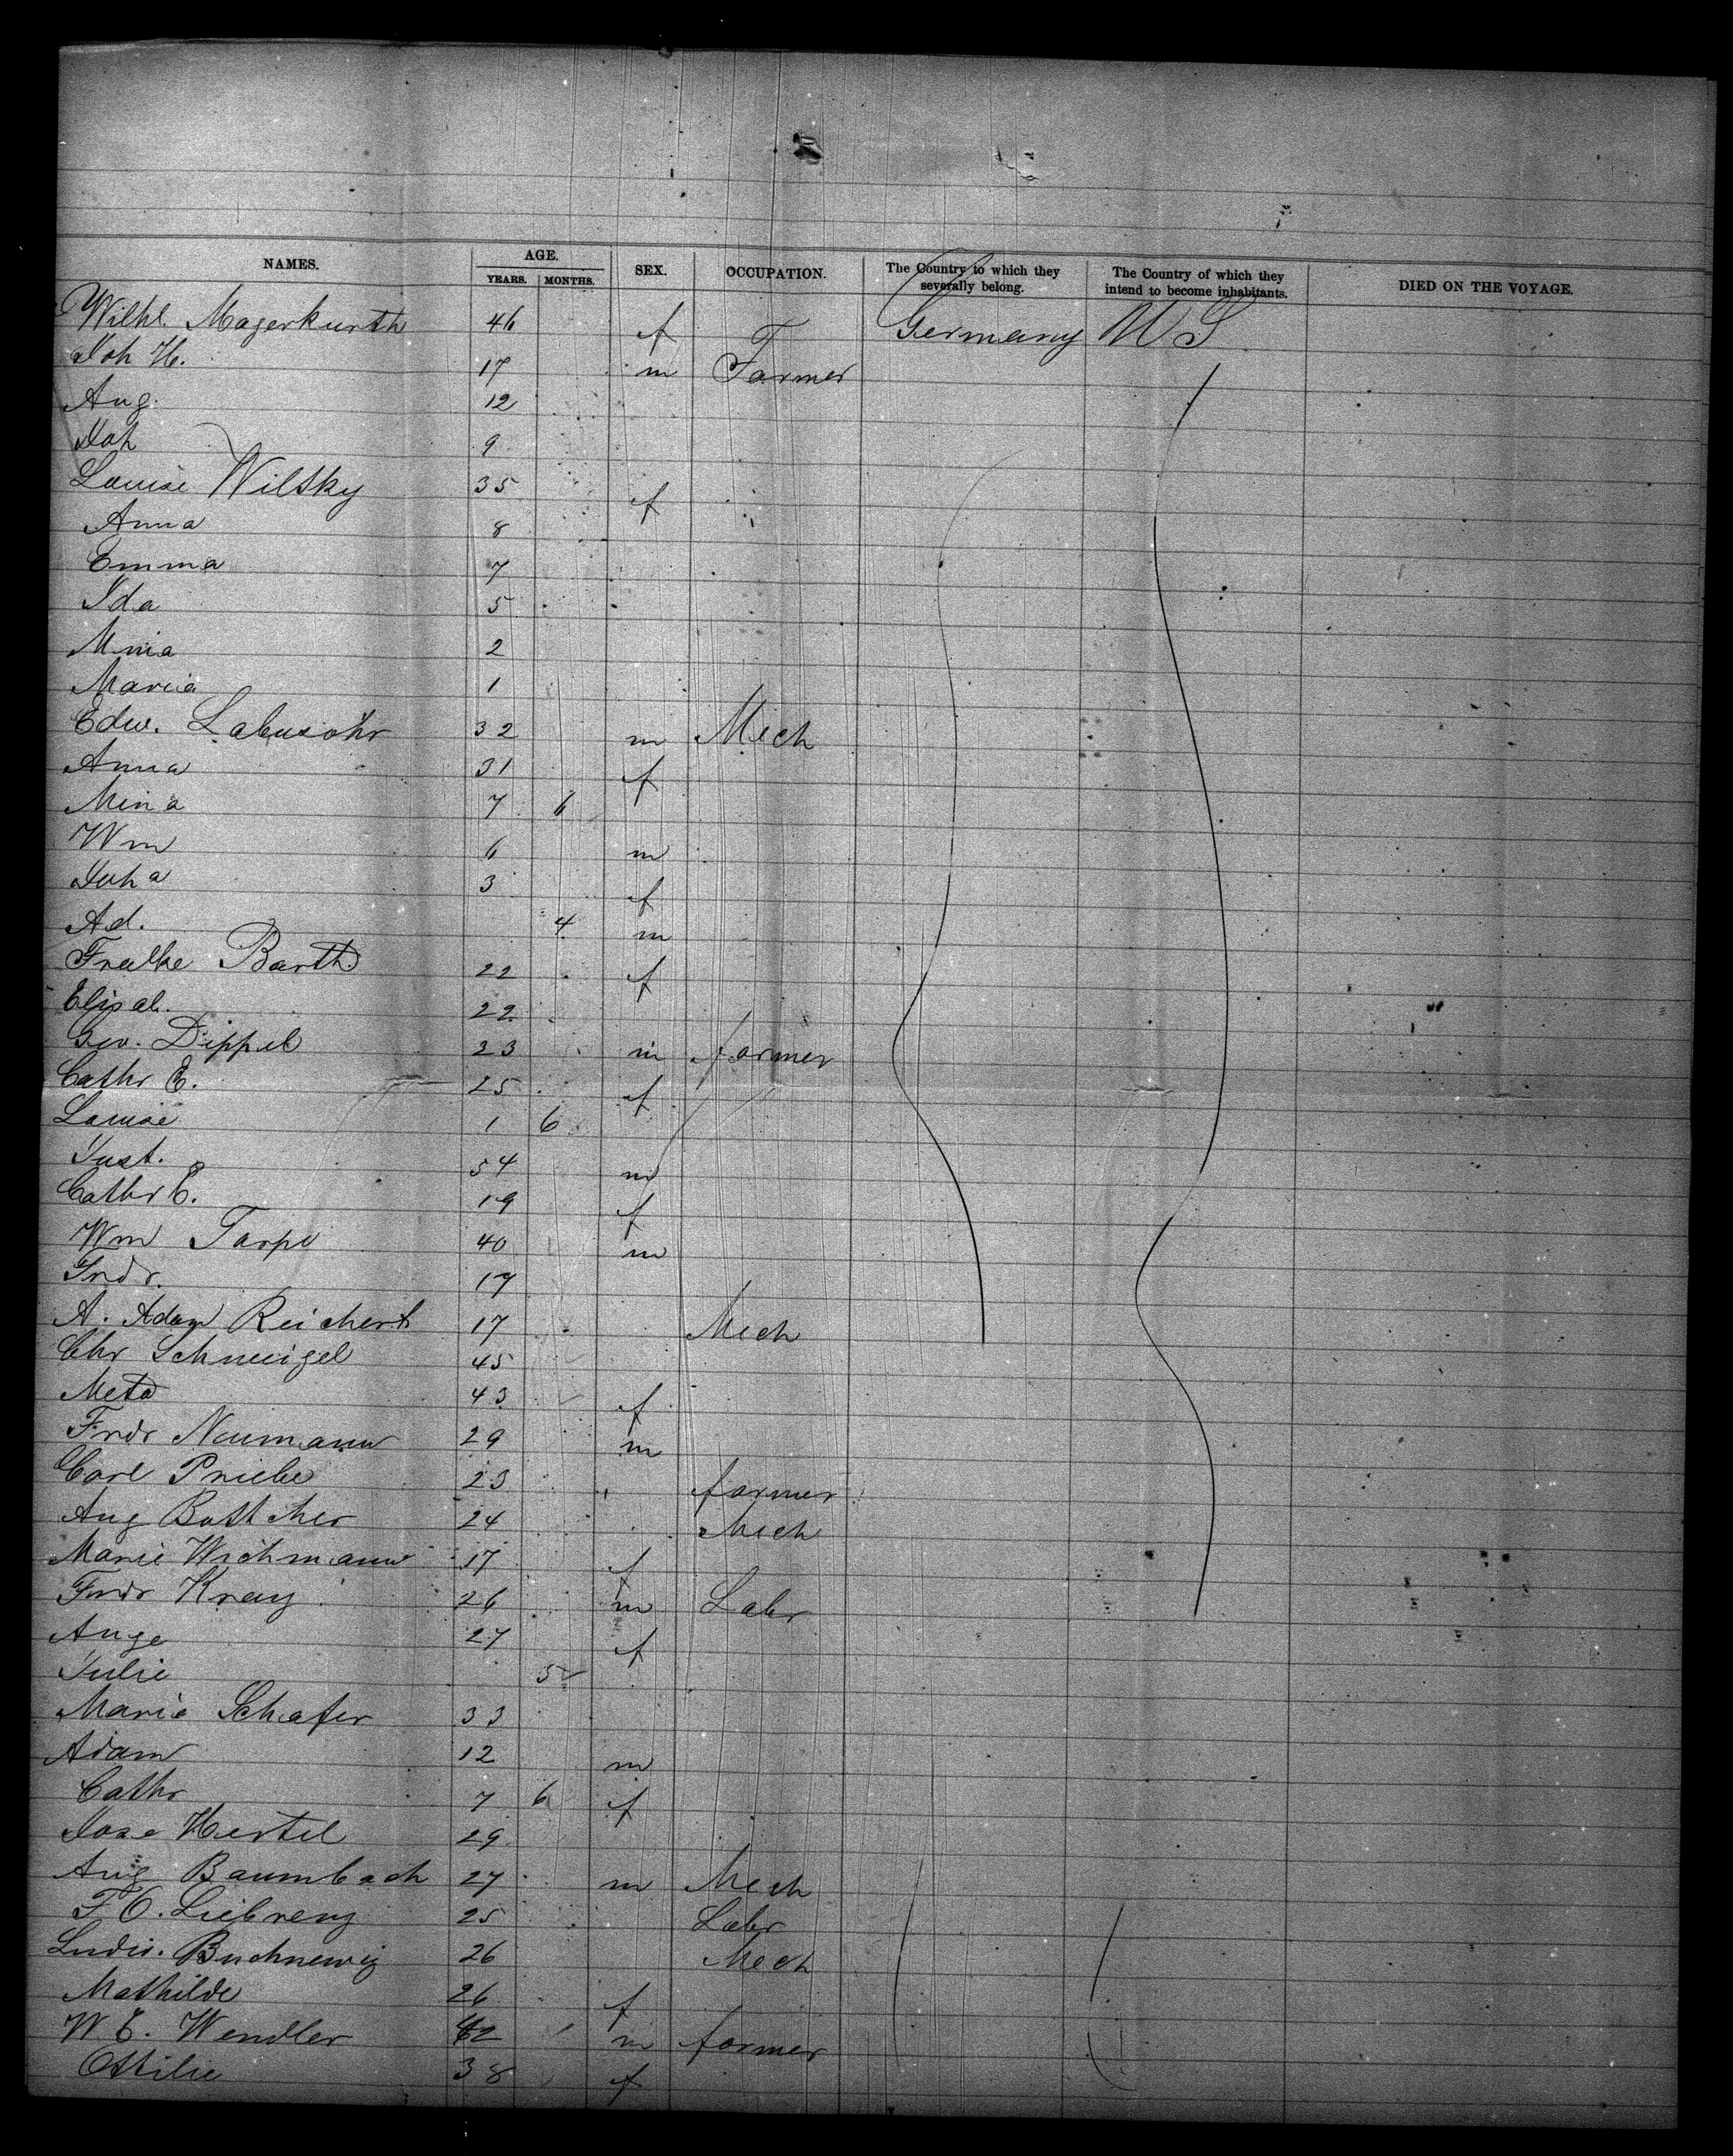 NAMES. AGE. YEARS. MONTHS. SEX. OCCUPATION. The Country to which they severally belong. The Country of which they intend to become inhabitants. DIED ON THE VOYAGE.
Wilhl. Magerkurth 46 f Germany U S
Joh H. 17 m Farmer
Aug. 12
Joh 9
Louise Wilsky 35 f
Anna 8
Emma 7
Ida 5
Mina 2
Maria 1
Edw. 32 m Mech
Anna 31 f
Mina 7 6
Wm 6 m
Joha 3 f
Ad. 4 m
Barth 22 f
Elisab. 22
Geo. Dippel 23 m farmer
Cathr E. 25 f
Louise 1 6
Just. 54 m
Cathr E. 19 f
Wm Tarpe 40 m
Frdr. 17
A. Adam Reichert 17 Mech
Chr Schweigel 45
Meta 43 f
Frdr Naumann 29 m
Carl Priebe 23 farmer
Aug Bottcher 24 Mech
Marie Wichmann 17 f
Frdr Kray 26 m Labr
Auge 27 f
Julie 5
Marie Schafer 33
Adam 12 m
Cathr 7 6 f
Jose Hertel 29
Aug Baumbach 27 m Mech
F C. Liebrenz 25 Labr
Ludw. Buchnewig 26 Mech
Mathilde 26 f
W E. Wendler 42 m farmer
Ottilie 38 f